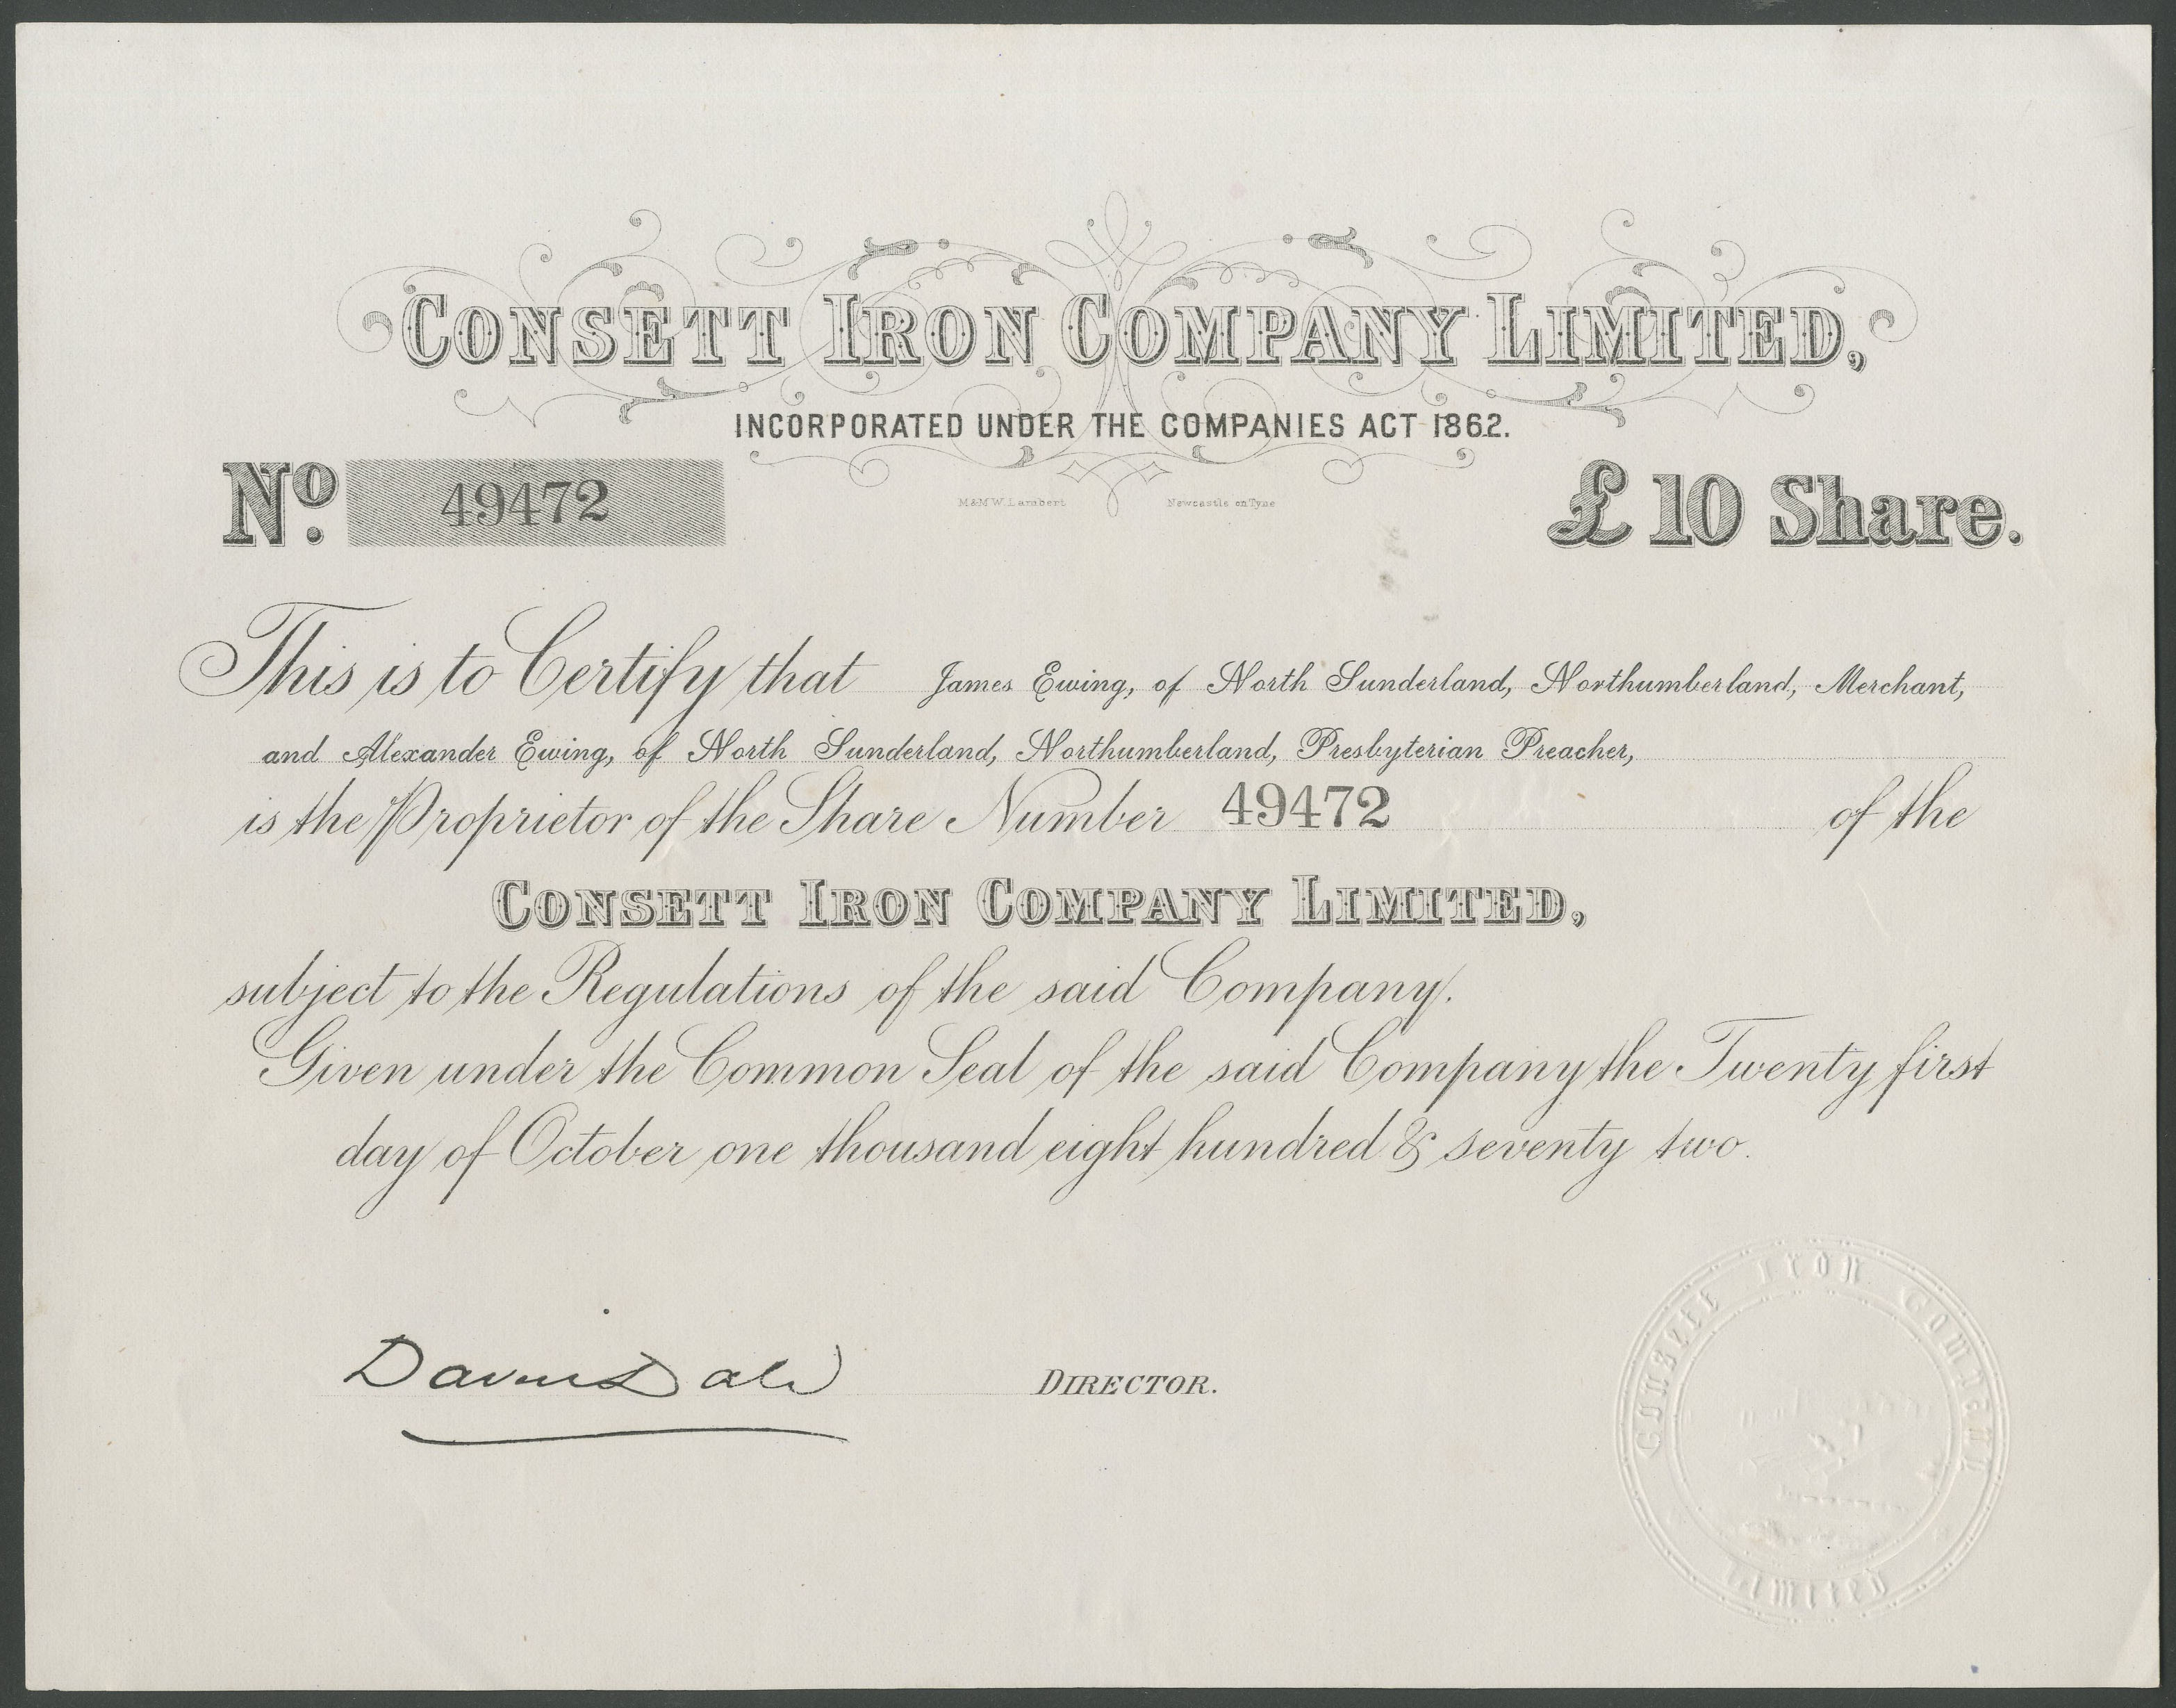 CONSETT IRON COMPANY LIMITED,
INCORPORATED UNDER THE COMPANIES ACT 1862.
No. 49472
£10 Share.
M&MW. Lambert Newcastle on Tyne
This is to Certify that James Ewing, of North Sunderland, Northumberland, Merchant,
and Alexander Ewing, of North Sunderland, Northumberland, Presbyterian Preacher,
is the Proprietor of the Share Number 49472 of the
CONSETT IRON COMPANY LIMITED,
subject to the Regulations of the said Company.
Given under the Common Seal of the said Company the Twenty first
day of October one thousand eight hundred & seventy two.
David Dale DIRECTOR.
Consett Iron Company
Limited